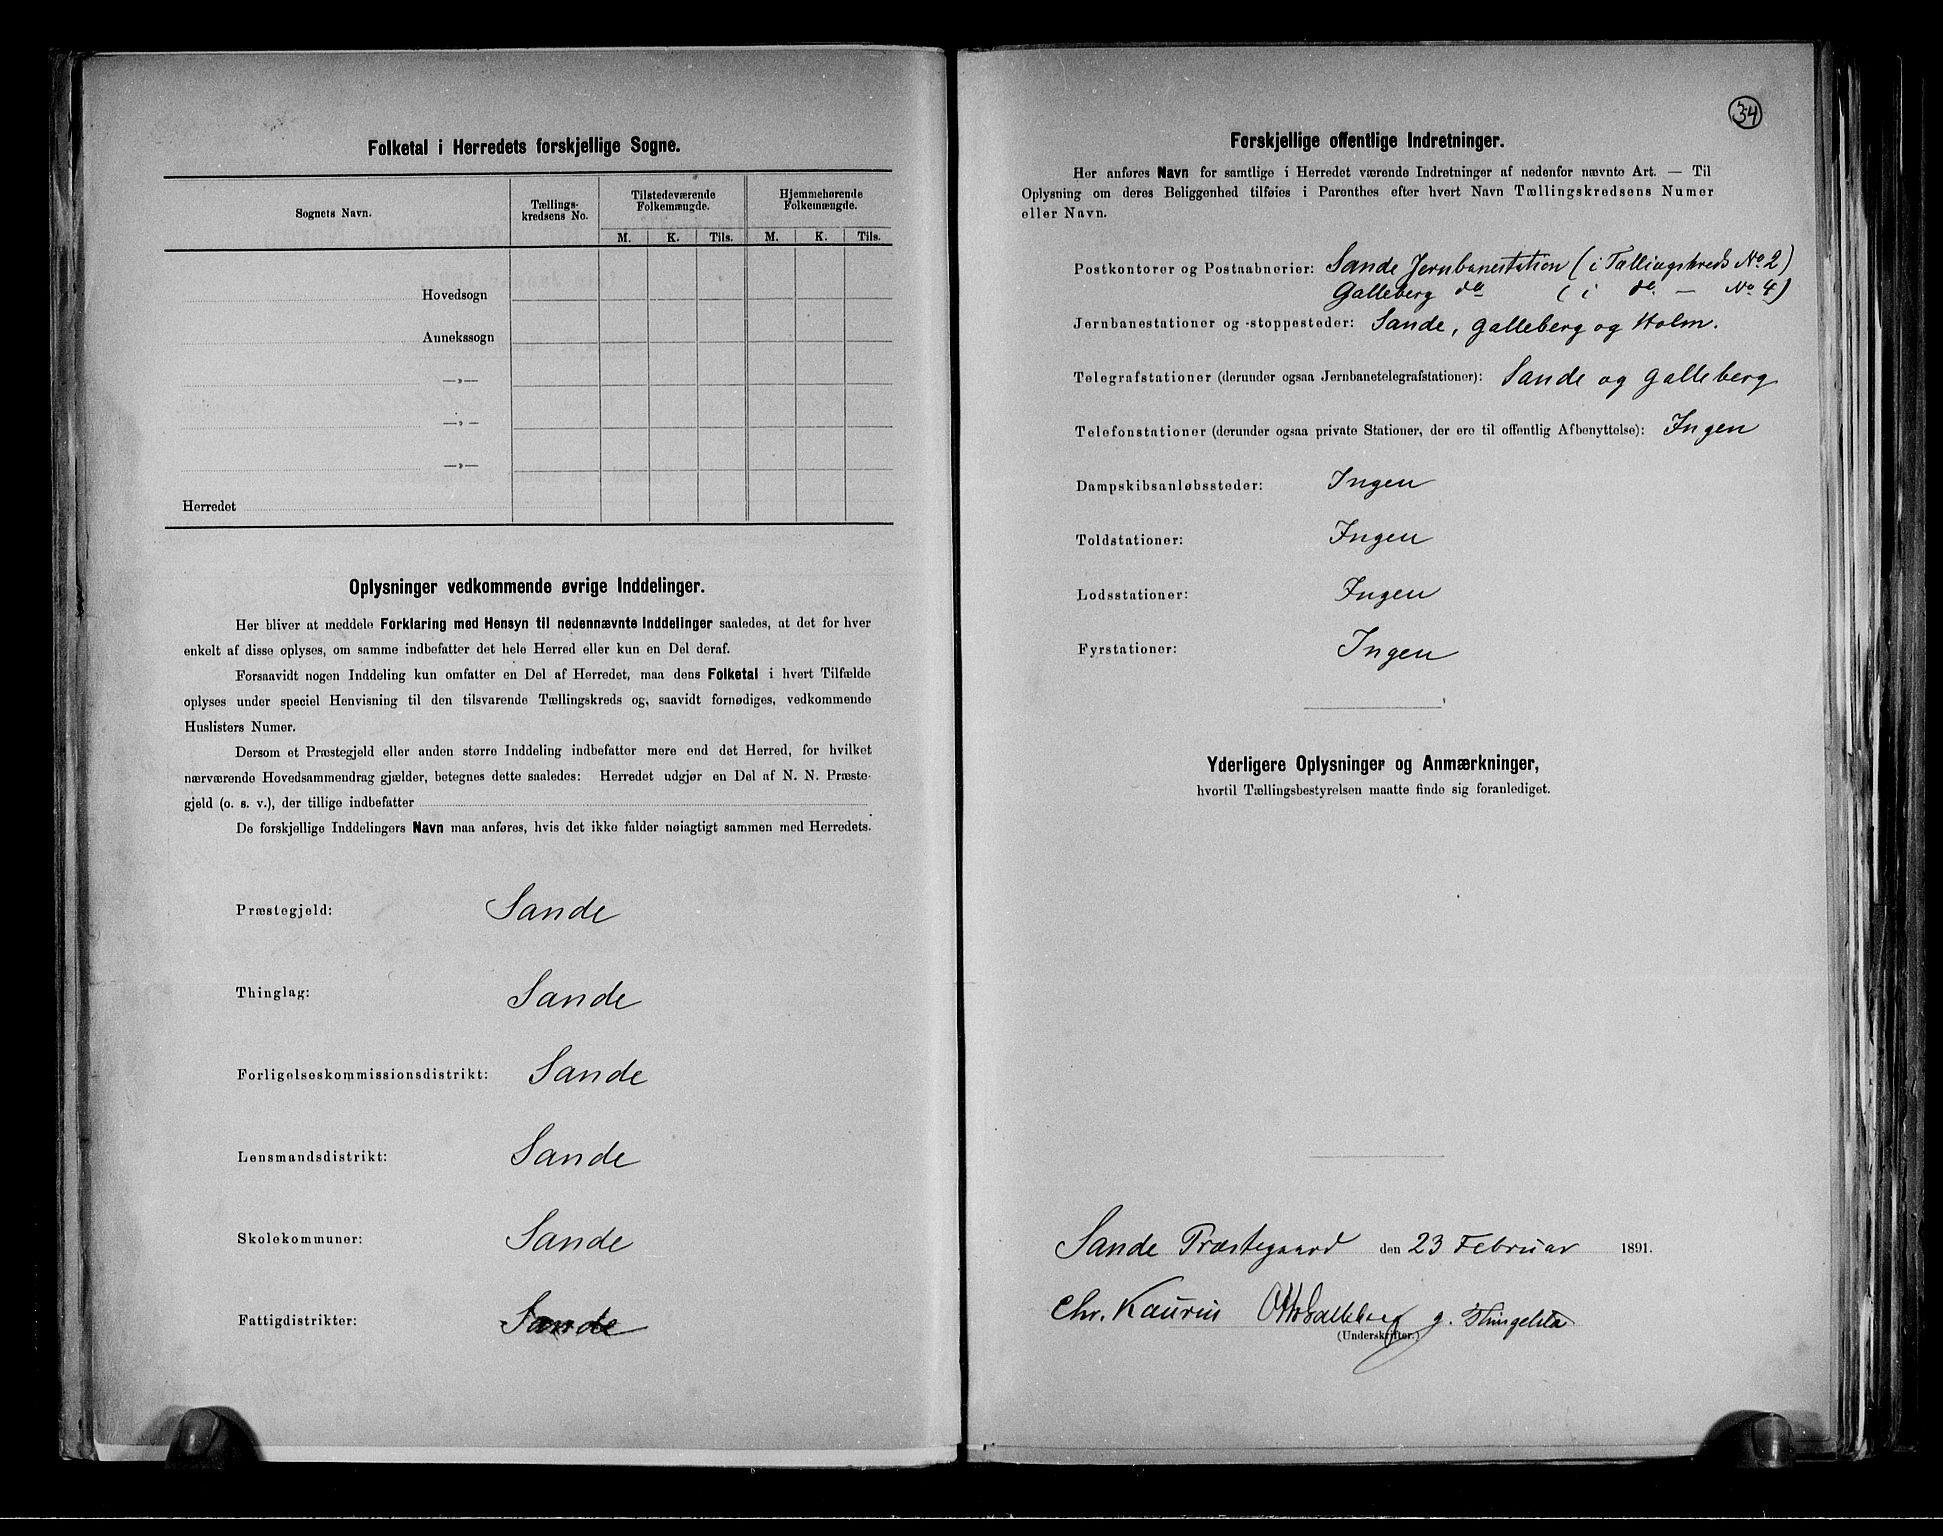 Folketal i Herredets forskjellige Sogne.
Sognets Navn.
Tællings-
kredsens No.
Tilstedeværende
Folkemængde.
Hjemmehørende
Folkemængde.
M. K. Tils. M. K. Tils.
Hovedsogn
Annekssogn
—»—
—»—
—»—
Herredet
Oplysninger vedkommende øvrige Inddelinger.
Her bliver at meddele Forklaring med Hensyn til nedennævnte Inddelinger saaledes, at det for hver
enkelt af disse oplyses, om samme indbefatter det hele Herred eller kun en Del deraf.
Forsaavidt nogen Inddeling kun omfatter en Del af Herredet, maa dens Folketal i hvert Tilfælde
oplyses under speciel Henvisning til den tilsvarende Tællingskreds og, saavidt fornødiges, vedkommende
Huslisters Numer.
Dersom et Præstegjeld eller anden større Inddeling indbefatter mere end det Herred, for hvilket
nærværende Hovedsammendrag gjælder, betegnes dette saaledes: Herredet udgjør en Del af N. N. Præste-
gjeld (o. s. v.), der tillige indbefatter
De forskjellige Inddelingers Navn maa anføres, hvis det ikke falder nøiagtigt sammen med Herredets.
Præstegjeld: Sande
Thinglag: Sande
Forligelseskommissionsdistrikt: Sande
Lensmandsdistrikt: Sande
Skolekommuner: Sande
Fattigdistrikter: Sande
34
Forskjellige offentlige Indretninger.
Her anføres Navn for samtlige i Herredet værende Indretninger af nedenfor nævnte Art. — Til
Oplysning om deres Beliggenhed tilføies i Parenthes efter hvert Navn Tællingskredsens Numer
eller Navn.
Postkontorer og Postaabnerier: Sande Jernbanestation (i Tællingskreds No 2)
Galleberg do (i do. — No 4)
Jernbanestationer og -stoppesteder: Sande, Galleberg og Holm.
Telegrafstationer (derunder ogsaa Jernbanetelegrafstationer): Sande og Galleberg
Telefonstationer (derunder ogsaa private Stationer, der ere til offentlig Afbenyttelse): Ingen
Dampskibsanløbssteder: Ingen
Toldstationer: Ingen
Lodsstationer: Ingen
Fyrstationer: Ingen
Yderligere Oplysninger og Anmærkninger,
hvortil Tællingsbestyrelsen maatte finde sig foranlediget.
Sande Præstegaard den 23 Februar 1891.
Chr. Kaurin Otto Galleberg G.
(Underskrifter.)